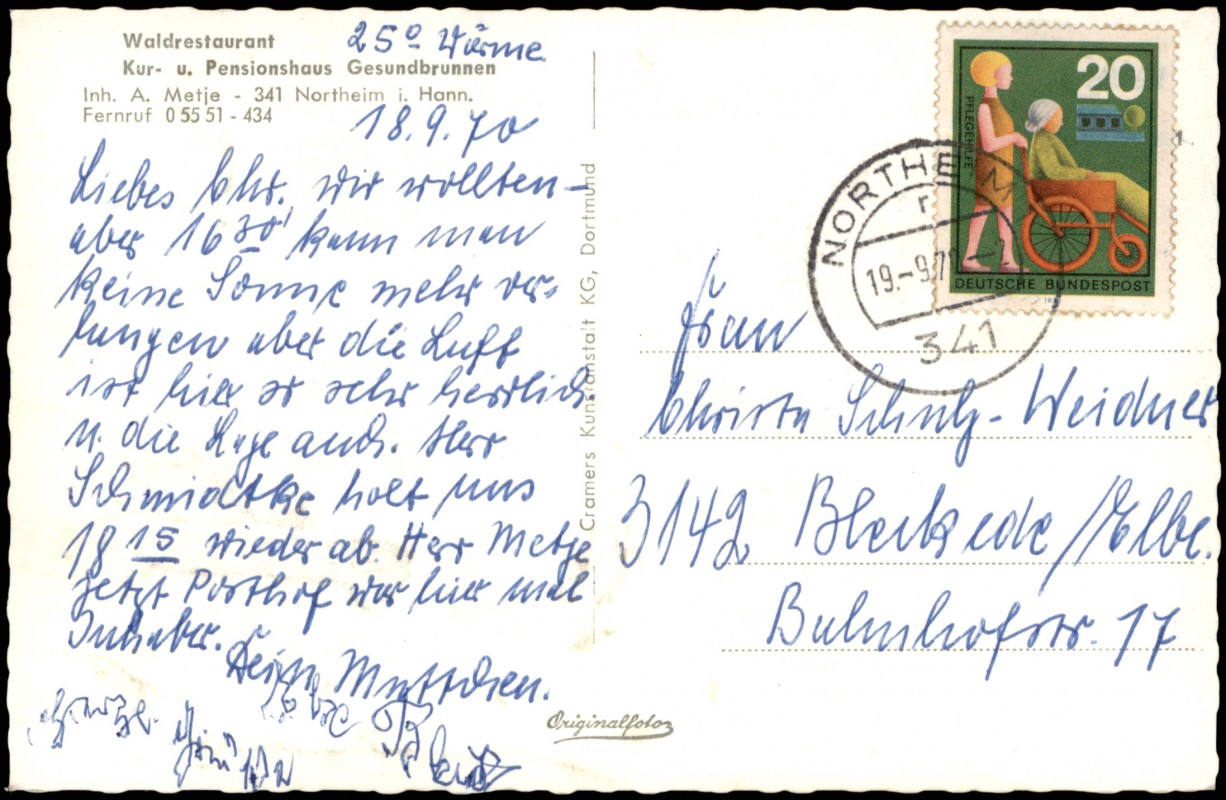 Waldrestaurant
Kur- u. Pensionshaus Gesundbrunnen
Inh. A. Metje - 341 Northeim i. Hann.
Fernruf 0 55 51 - 434
25° Wärme
18.9.70
Liebes Chr. wir wollten –
aber 16 30' kann man
keine Sonne mehr ver-
langen aber die Luft
ist hier so sehr herrlich
u. die Lage auch. Herr
Schmidtke holt uns
18 15 wieder ab. Herr Metje
jetzt Posthof war hier mal
Inhaber.
Dein Muttchen.
Herzl. Grüße
Cramers Kunstanstalt KG, Dortmund
Originalfoto
20
PFLEGEHILFE
DEUTSCHE BUNDESPOST
NORTHEIM
19.-9.70
341
Frau
Christa Schulz-Weidner
3142 Bleckede/Elbe.
Bahnhofstr. 17